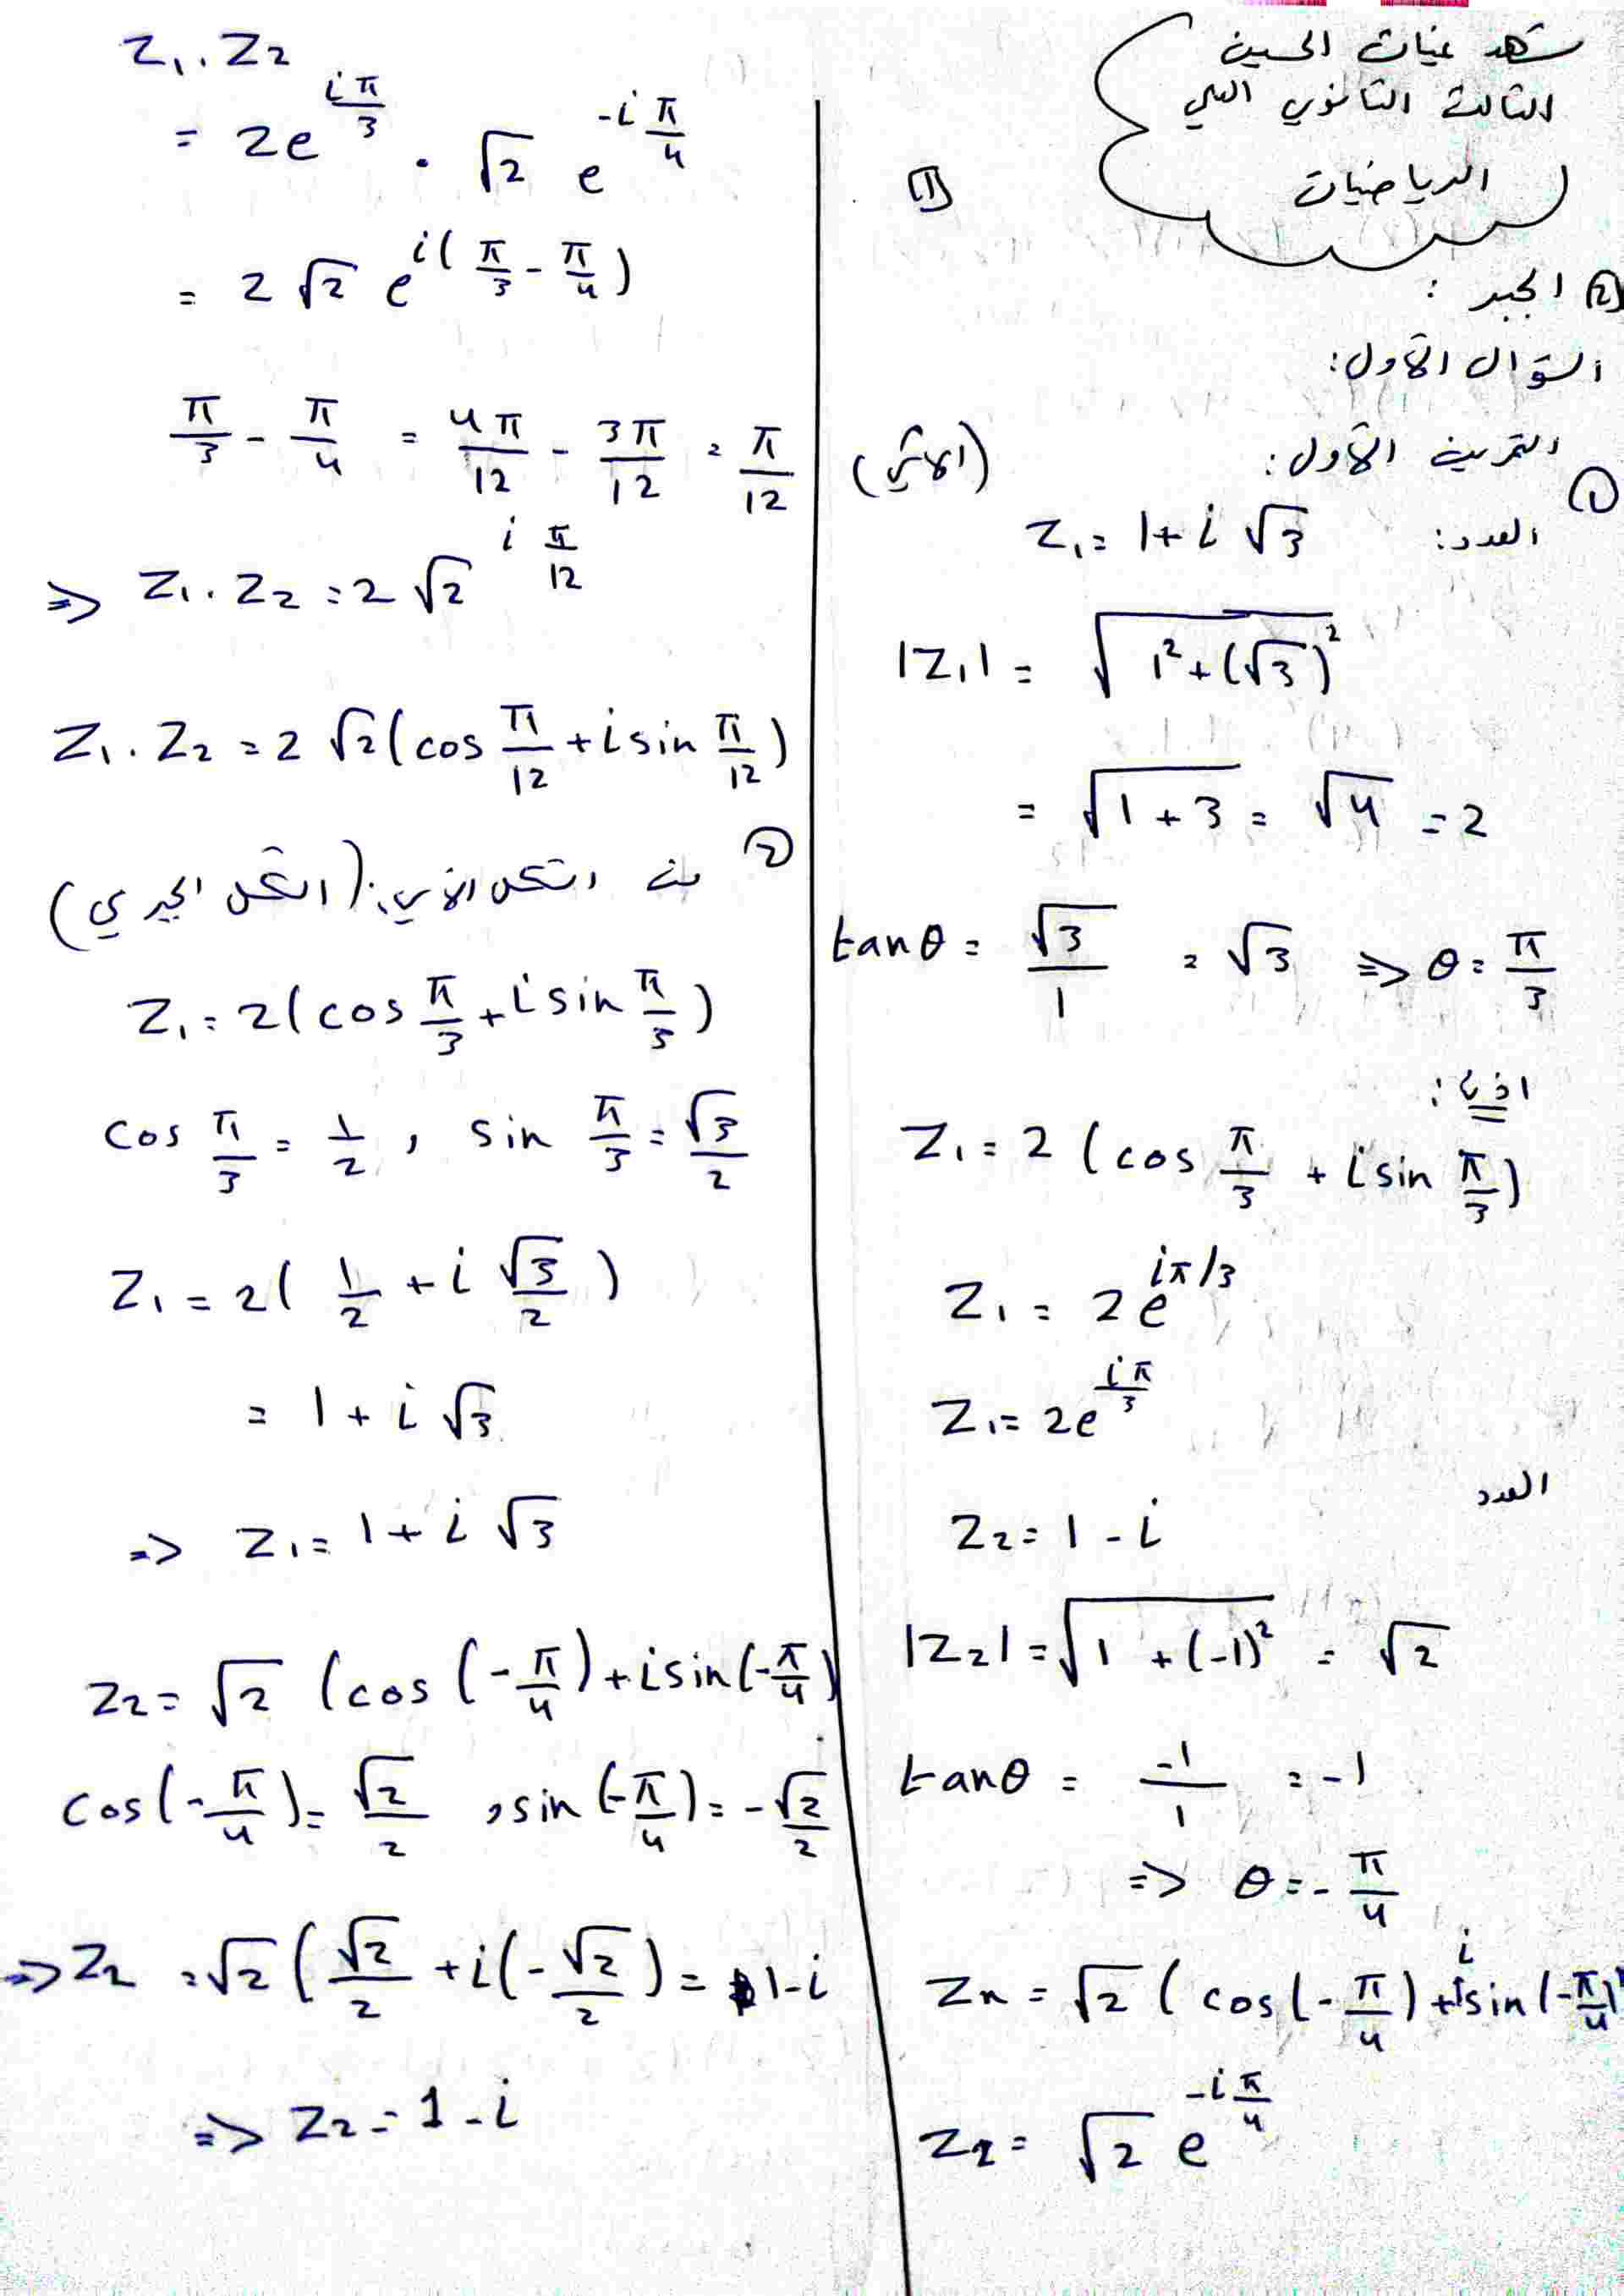 شهد غياث الحسين
الثالث الثانوي العلمي
الرياضيات
①
② الجبر :
السؤال الأول:
التمرين الأول: (الأسّي)
①
العدد: Z₁ = 1 + i √3
|Z₁| = √(1² + (√3)²)
= √(1 + 3) = √4 = 2
tan θ = √3/1 = √3 => θ = π/3
اذن :
Z₁ = 2 (cos π/3 + i sin π/3)
Z₁ = 2 e^(iπ/3)
Z₁ = 2e^(iπ/3)
العدد
Z₂ = 1 - i
|Z₂| = √(1 + (-1)²) = √2
tan θ = -1/1 = -1
=> θ = - π/4
Z₂ = √2 ( cos(- π/4) + i sin(- π/4)
Z₂ = √2 e^(-i π/4)
Z₁ . Z₂
= 2e^(iπ/3) . √2 e^(-i π/4)
= 2 √2 e^(i( π/3 - π/4 ))
π/3 - π/4 = 4π/12 - 3π/12 = π/12
=> Z₁ . Z₂ = 2 √2^(i π/12)
Z₁ . Z₂ = 2 √2 (cos π/12 + i sin π/12)
② من الشكل الأسي: (الشكل الجبري)
Z₁ = 2(cos π/3 + i sin π/3)
cos π/3 = 1/2 , sin π/3 = √3/2
Z₁ = 2( 1/2 + i √3/2 )
= 1 + i √3
=> Z₁ = 1 + i √3
Z₂ = √2 (cos (- π/4) + i sin(- π/4)
cos(- π/4) = √2/2 , sin(- π/4) = - √2/2
=> Z₂ = √2 ( √2/2 + i(- √2/2 ) = 1 - i
=> Z₂ = 1 - i